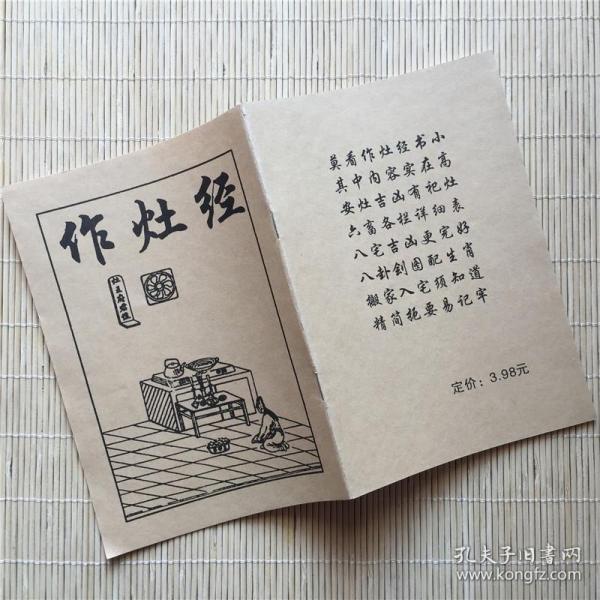 作灶经
灶王府君位
莫看作灶经书小
其中内容实在高
安灶吉凶有祀灶
六畜各栏详细表
八宅吉凶更完好
八卦剑图配生肖
搬家入宅须知道
精简扼要易记牢
定价：3.98元
孔夫子旧書网
www.kongfz.com